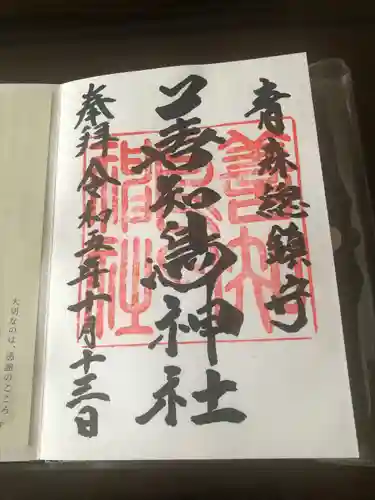 青森総鎮守
善知鳥神社
奉拝 令和五年十月十三日
大切なのは、感謝のこころ